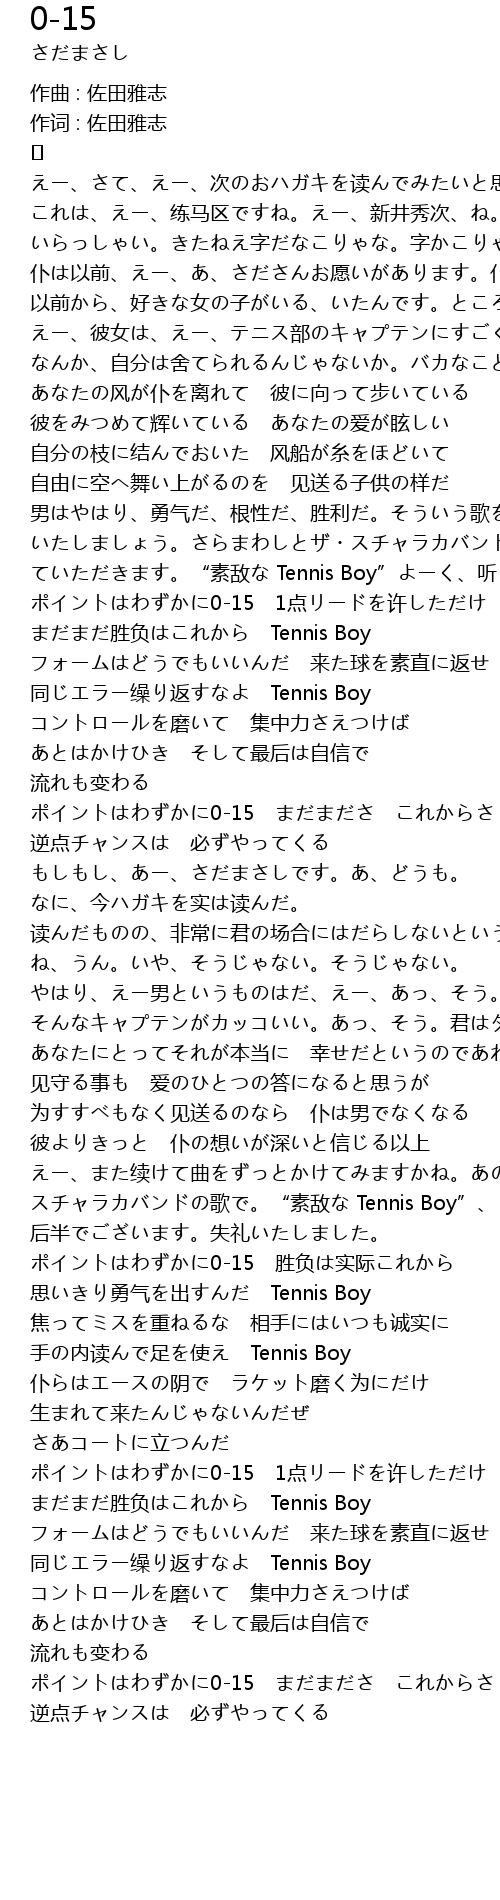 0-15
さだまさし
作曲 : 佐田雅志
作词 : 佐田雅志
[]
えー、さて、えー、次のおハガキを读んでみたいと思
これは、えー、练马区ですね。えー、新井秀次、ね。
いらっしゃい。きたねえ字だなこりゃな。字かこりゃ
仆は以前、えー、あ、さださんお愿いがあります。仆
以前から、好きな女の子がいる、いたんです。ところ
えー、彼女は、えー、テニス部のキャプテンにすごく
なんか、自分は舍てられるんじゃないか。バカなこと
あなたの风が仆を离れて　彼に向って步いている
彼をみつめて辉いている　あなたの爱が眩しい
自分の枝に结んでおいた　风船が糸をほどいて
自由に空へ舞い上がるのを　见送る子供の样だ
男はやはり、勇气だ、根性だ、胜利だ。そういう歌を
いたしましょう。さらまわしとザ・スチャラカバンド
ていただきます。“素敌な Tennis Boy”よーく、听
ポイントはわずかに0-15　1点リードを许しただけ
まだまだ胜负はこれから　Tennis Boy
フォームはどうでもいいんだ　来た球を素直に返せ
同じエラー缲り返すなよ　Tennis Boy
コントロールを磨いて　集中力さえつけば
あとはかけひき　そして最后は自信で
流れも变わる
ポイントはわずかに0-15　まだまださ　これからさ
逆点チャンスは　必ずやってくる
もしもし、あー、さだまさしです。あ、どうも。
なに、今ハガキを实は读んだ。
读んだものの、非常に君の场合にはだらしないという
ね、うん。いや、そうじゃない。そうじゃない。
やはり、えー男というものはだ、えー、あっ、そう。
そんなキャプテンがカッコいい。あっ、そう。君はダ
あなたにとってそれが本当に　幸せだというのであれ
见守る事も　爱のひとつの答になると思うが
为すすべもなく见送るのなら　仆は男でなくなる
彼よりきっと　仆の想いが深いと信じる以上
えー、また续けて曲をずっとかけてみますかね。あの
スチャラカバンドの歌で。“素敌な Tennis Boy”、
后半でございます。失礼いたしました。
ポイントはわずかに0-15　胜负は实际これから
思いきり勇气を出すんだ　Tennis Boy
焦ってミスを重ねるな　相手にはいつも诚实に
手の内读んで足を使え　Tennis Boy
仆らはエースの阴で　ラケット磨く为にだけ
生まれて来たんじゃないんだぜ
さあコートに立つんだ
ポイントはわずかに0-15　1点リードを许しただけ
まだまだ胜负はこれから　Tennis Boy
フォームはどうでもいいんだ　来た球を素直に返せ
同じエラー缲り返すなよ　Tennis Boy
コントロールを磨いて　集中力さえつけば
あとはかけひき　そして最后は自信で
流れも变わる
ポイントはわずかに0-15　まだまださ　これからさ
逆点チャンスは　必ずやってくる